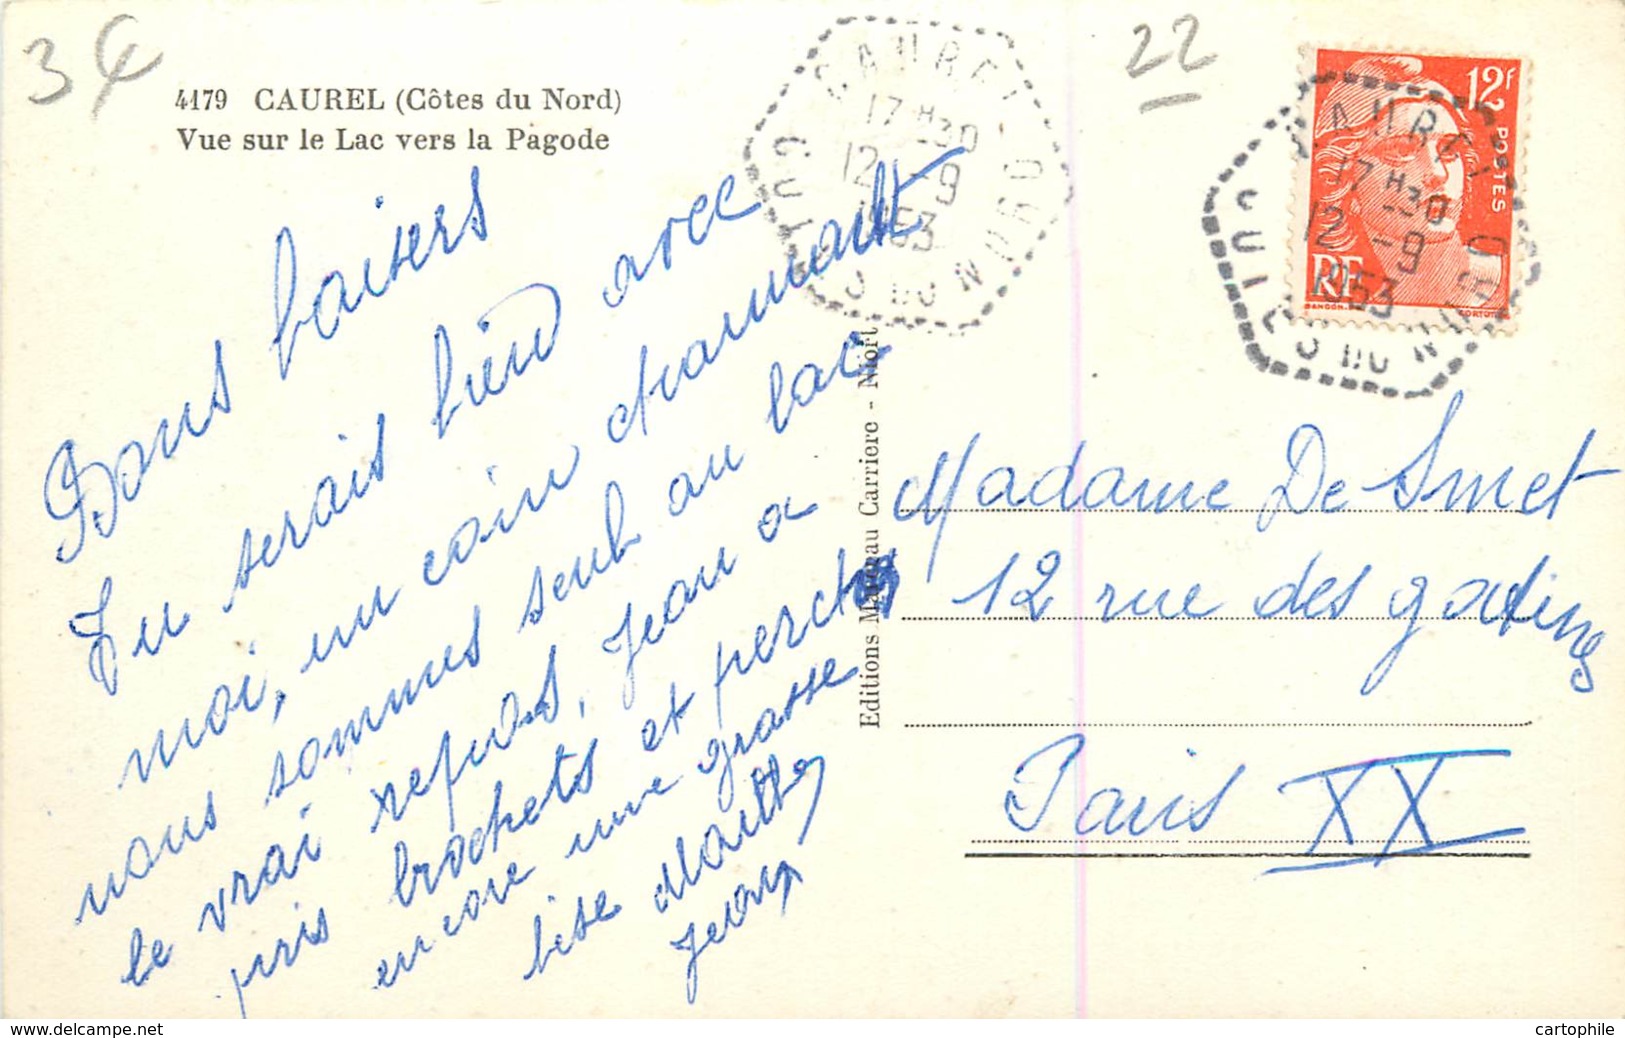 34
4179 CAUREL (Côtes du Nord)
Vue sur le Lac vers la Pagode
22
CAUREL
17 H30
12 -9
1953
COTES DU NORD
12F
POSTES
RF
CAUREL
17 H30
12 -9
1953
COTES DU NORD
Bons baisers
Tu serais bien avec
moi, un coin charmant
nous sommes seuls au lac
le vrai repos, Jean a
pris brochets et perches
encore une grosse
bise Marthe
Jean
Editions Marceau Carriere - Niort
Madame De Smet
12 rue des gatines
Paris XX
www.delcampe.net
cartophile